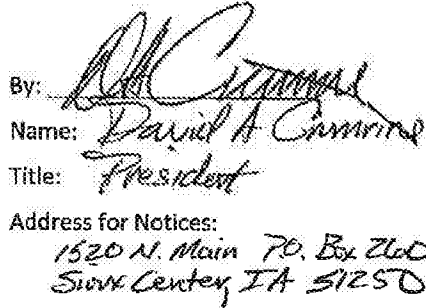 By: DA Crumrine
Name: David A Crumrine
Title: President
Address for Notices:
1520 N. Main P.O. Box 260
Sioux Center, IA 51250